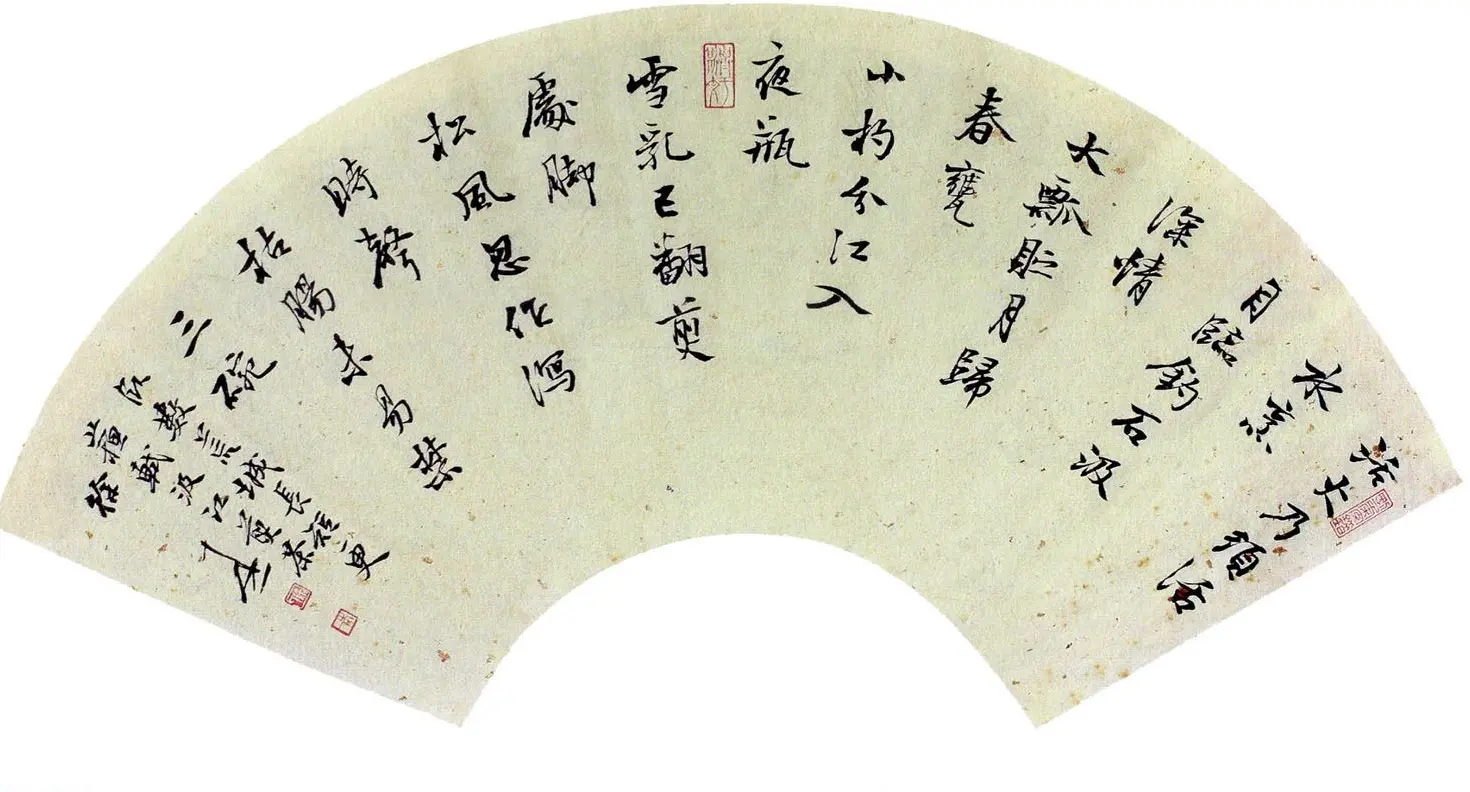 活火乃須活
水烹
自臨釣石汲
深情
大瓢貯月歸
春甕
小杓分江入
夜瓶
雪乳已翻煎
處脚
松風忽作瀉
時聲
枯腸未易禁
三碗
數荒城長短更
蘇軾汲江煎茶
徐